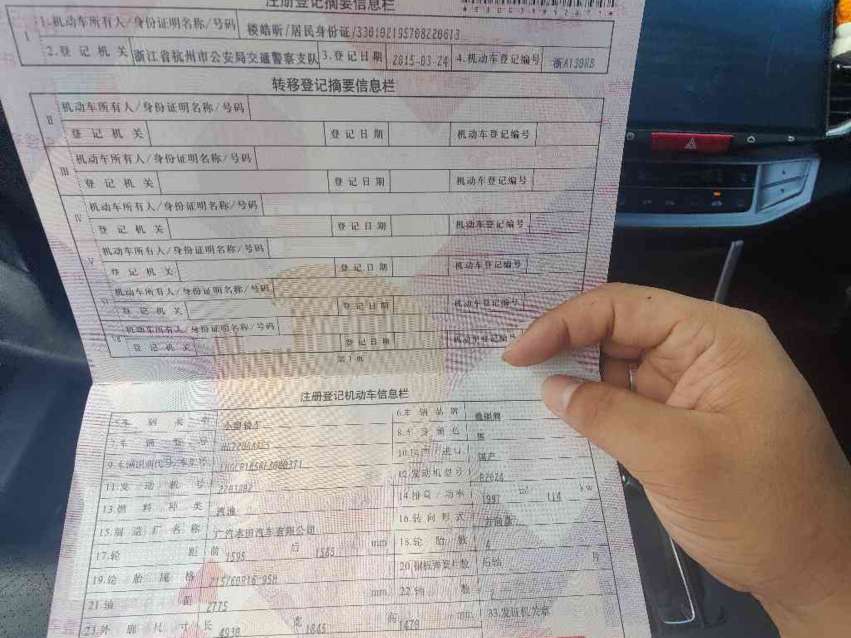 注册登记摘要信息栏
I 1.机动车所有人/身份证明名称/号码 楼皓昕/居民身份证/
2.登记机关 浙江省杭州市公安局交通警察支队 3.登记日期 2015-03-24 4.机动车登记编号
转移登记摘要信息栏
II 机动车所有人/身份证明名称/号码
登记机关 登记日期 机动车登记编号
III 机动车所有人/身份证明名称/号码
登记机关 登记日期 机动车登记编号
IV 机动车所有人/身份证明名称/号码
登记机关 登记日期 机动车登记编号
V 机动车所有人/身份证明名称/号码
登记机关 登记日期 机动车登记编号
VI 机动车所有人/身份证明名称/号码
登记机关 登记日期 机动车登记编号
机动车所有人/身份证明名称/号码
登记机关 登记日期 机动车登记编号
第1页
注册登记机动车信息栏
5.车辆类型 小型轿车 6.车辆品牌 雅阁牌
7.车辆型号 8.车身颜色 黑
9.车辆识别代号/车架号 10.国产/进口 国产
11.发动机号 12.发动机型号
13.燃料种类 汽油 14.排量/功率 1997 ml 114 kw
15.制造厂名称 广汽本田汽车有限公司 16.转向形式 方向盘
17.轮距 前 1595 后 1585 mm 18.轮胎数 4
19.轮胎规格 215/60R16 95H 20.钢板弹簧片数 后轴
21.轴距 2775 mm 22.轴数 2
23.外廓尺寸 长 4930 宽 1845 高 1479 mm 33.发证机关章